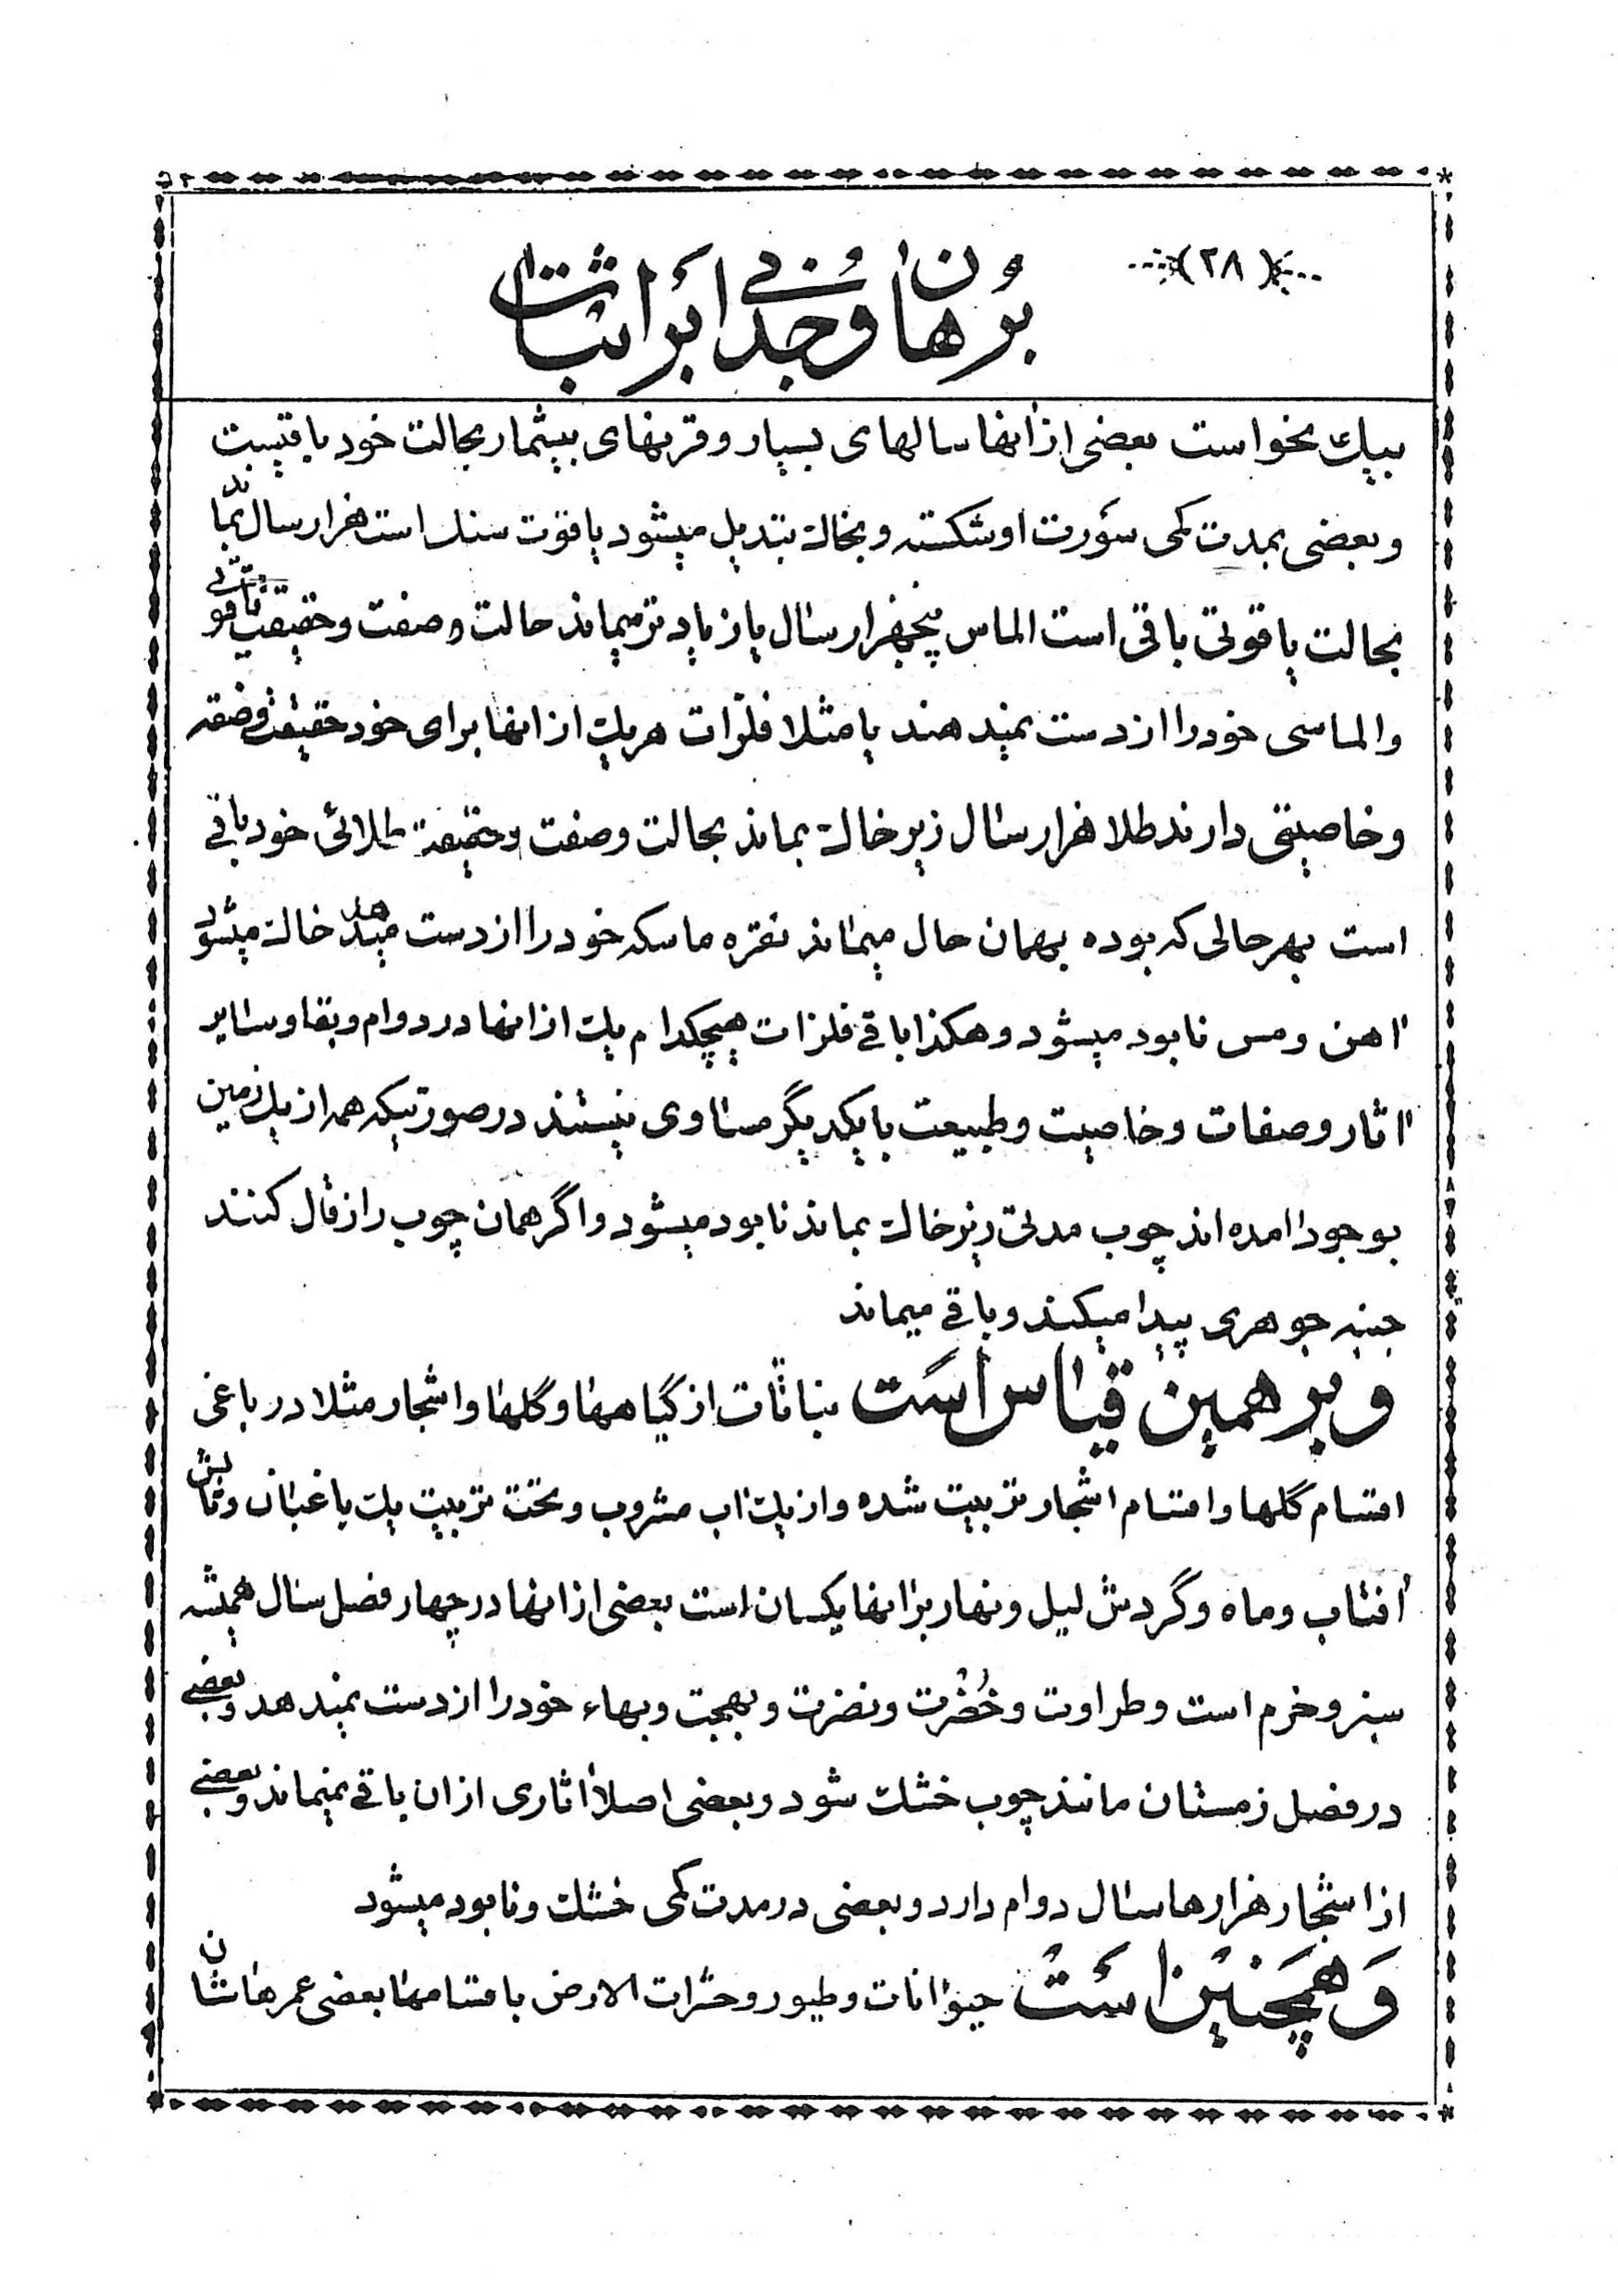 (۲۸)
برهان وجدی بر اثبات
بیک نخواست بعضی از انها سالهای بسیار و قرنهای بیشمار بحالت خود باقیست
و بعضی بمدت کمی سورت او شکسته و بخاک تبدیل میشود یاقوت سنک است هزار سال بماند
بحالت یاقوتی باقی است الماس پنجهزار سال یا زیادتر میماند حالت و صفت و حقیقت یاقوتی
و الماسی خود را از دست نمیدهند یا مثلا فلزات هر یک از انها برای خود حقیقت و صفه
و خاصیتی دارند طلا هزار سال زیر خاک بماند بحالت و صفت و حقیقة طلائی خود باقی
است بهر حالی که بوده بهمان حال میماند نقره ماسکه خود را از دست میدهد خاک میشود
اهن و مس نابود میشود و هکذا باقی فلزات هیچکدام یک از انها در دوام و بقا و سایر
اثار و صفات و خاصیت و طبیعت با یکدیگر مساوی نیستند در صورتیکه همه از یک زمین
بوجود امده اند چوب مدتی زیر خاک بماند نابود میشود و اگر همان چوب را زقال کنند
جنبه جوهری پیدا میکند و باقی میماند
و بر همین قیاس است نباتات از گیاهها و گلها و اشجار مثلا در باغی
اقسام گلها و اقسام اشجار تربیت شده و از یک اب مشروب و تحت تربیت یک باغبان و تابش
افتاب و ماه و گردش لیل و نهار بر انها یکسان است بعضی از انها در چهار فصل سال همیشه
سبز و خرم است و طراوت و خُضرت و نضرت و بهجت و بهاء خود را از دست نمیدهد و بعضی
در فصل زمستان مانند چوب خشک شود و بعضی اصلاً اثاری از ان باقی نمیماند و بعضی
از اشجار هزارها سال دوام دارد و بعضی در مدت کمی خشک و نابود میشود
وَ همچَنین است حیوانات و طیور و حشرات الارض باقسامها بعضی عمرهاشان